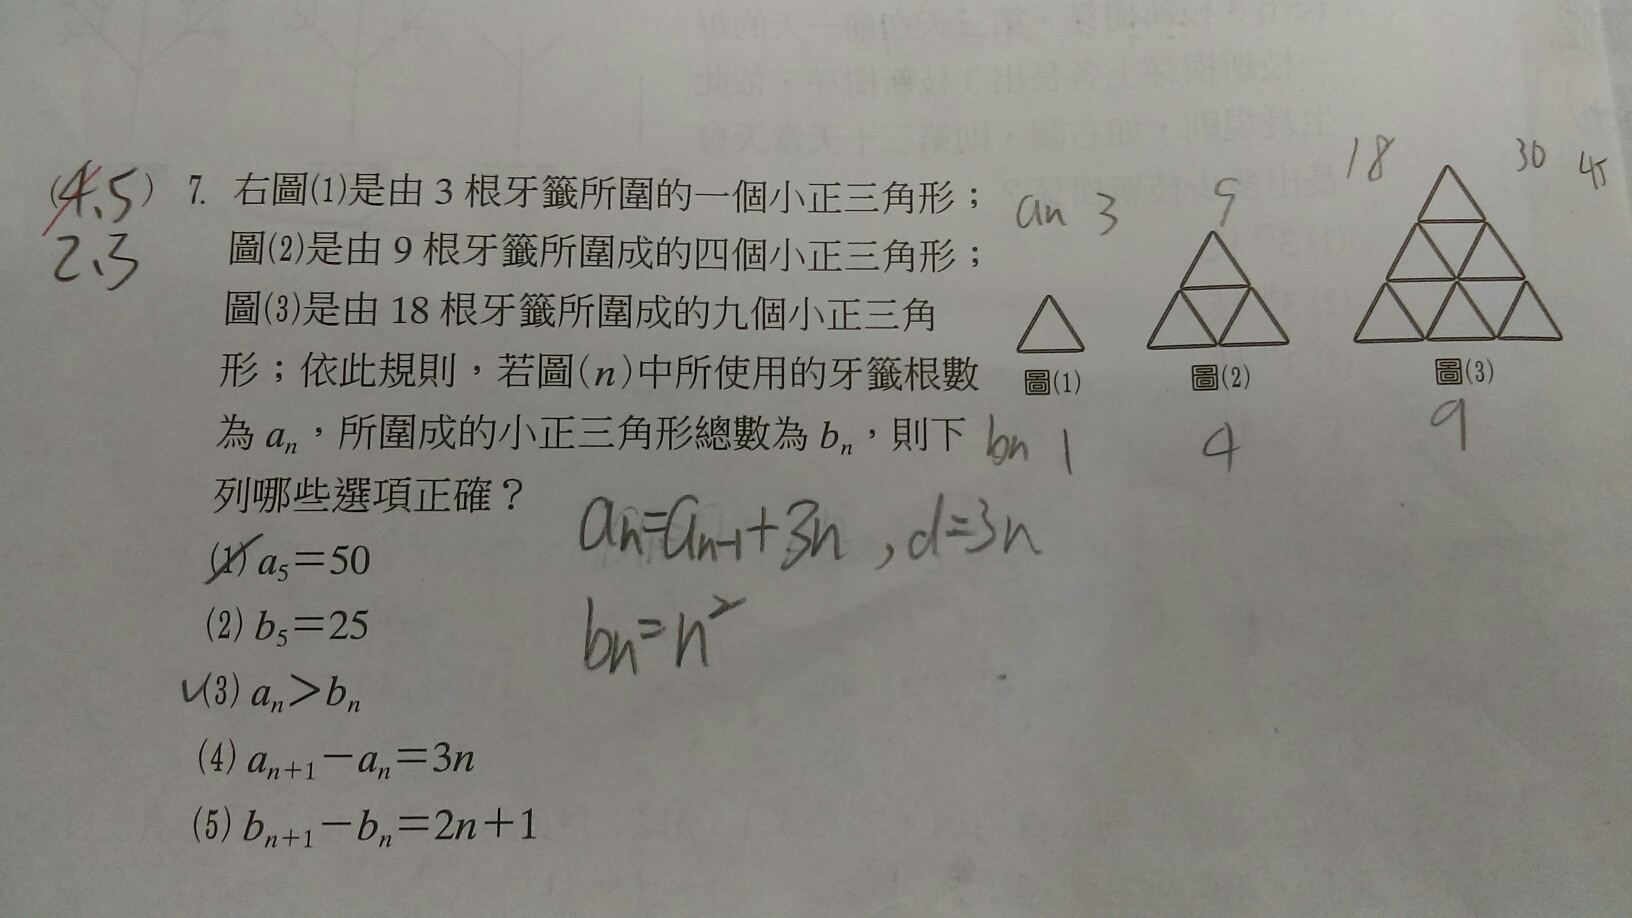 (4.5) 7. 右圖(1)是由 3 根牙籤所圍的一個小正三角形；
2.3
圖(2)是由 9 根牙籤所圍成的四個小正三角形；
圖(3)是由 18 根牙籤所圍成的九個小正三角
形；依此規則，若圖(n)中所使用的牙籤根數
為 aₙ，所圍成的小正三角形總數為 bₙ，則下
列哪些選項正確？
(1) a₅＝50
(2) b₅＝25
✓(3) aₙ＞bₙ
(4) aₙ₊₁－aₙ＝3n
(5) bₙ₊₁－bₙ＝2n＋1
an 3 9 18 30 45
圖(1) 圖(2) 圖(3)
bn 1 4 9
an=an-1+3n , d=3n
bn=n²